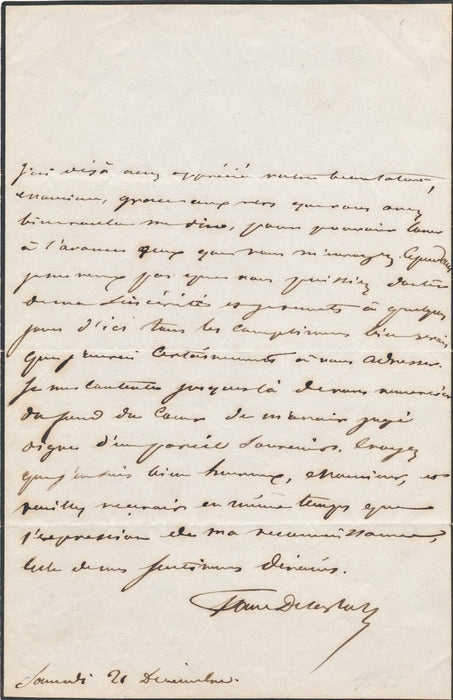 J'ai déjà assez apprécié votre beau talent,
Monsieur, grâce aux vers que vous avez
bien voulu me dire, pour pouvoir louer
à l'avance ceux que vous m'envoyez. Cependant
je ne veux pas que vous puissiez douter
de ma sincérité et je remets à quelques
jours d'ici tous les compliments bien vrais
que j'aurai certainement à vous adresser.
Je me contente jusque là de vous remercier
du fond du Cœur de m'avoir jugé
digne d'un pareil Souvenir. Croyez
que j'en suis bien heureux, Monsieur, et
veuillez recevoir en même temps que
l'expression de ma reconnaissance,
celle de mes sentiments dévoués.
Samedi 21 Décembre.